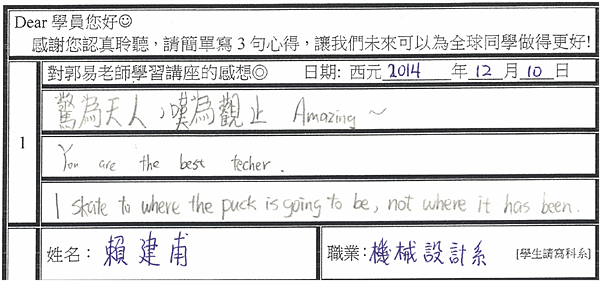 Dear 學員您好☺
感謝您認真聆聽，請簡單寫 3 句心得，讓我們未來可以為全球同學做得更好!
對郭易老師學習講座的感想◎ 日期: 西元 2014 年 12 月 10 日
1
驚為天人，嘆為觀止 Amazing ~
You are the best techer.
I skate to where the puck is going to be, not where it has been.
姓名： 賴建甫 職業: 機械設計系 [學生請寫科系]